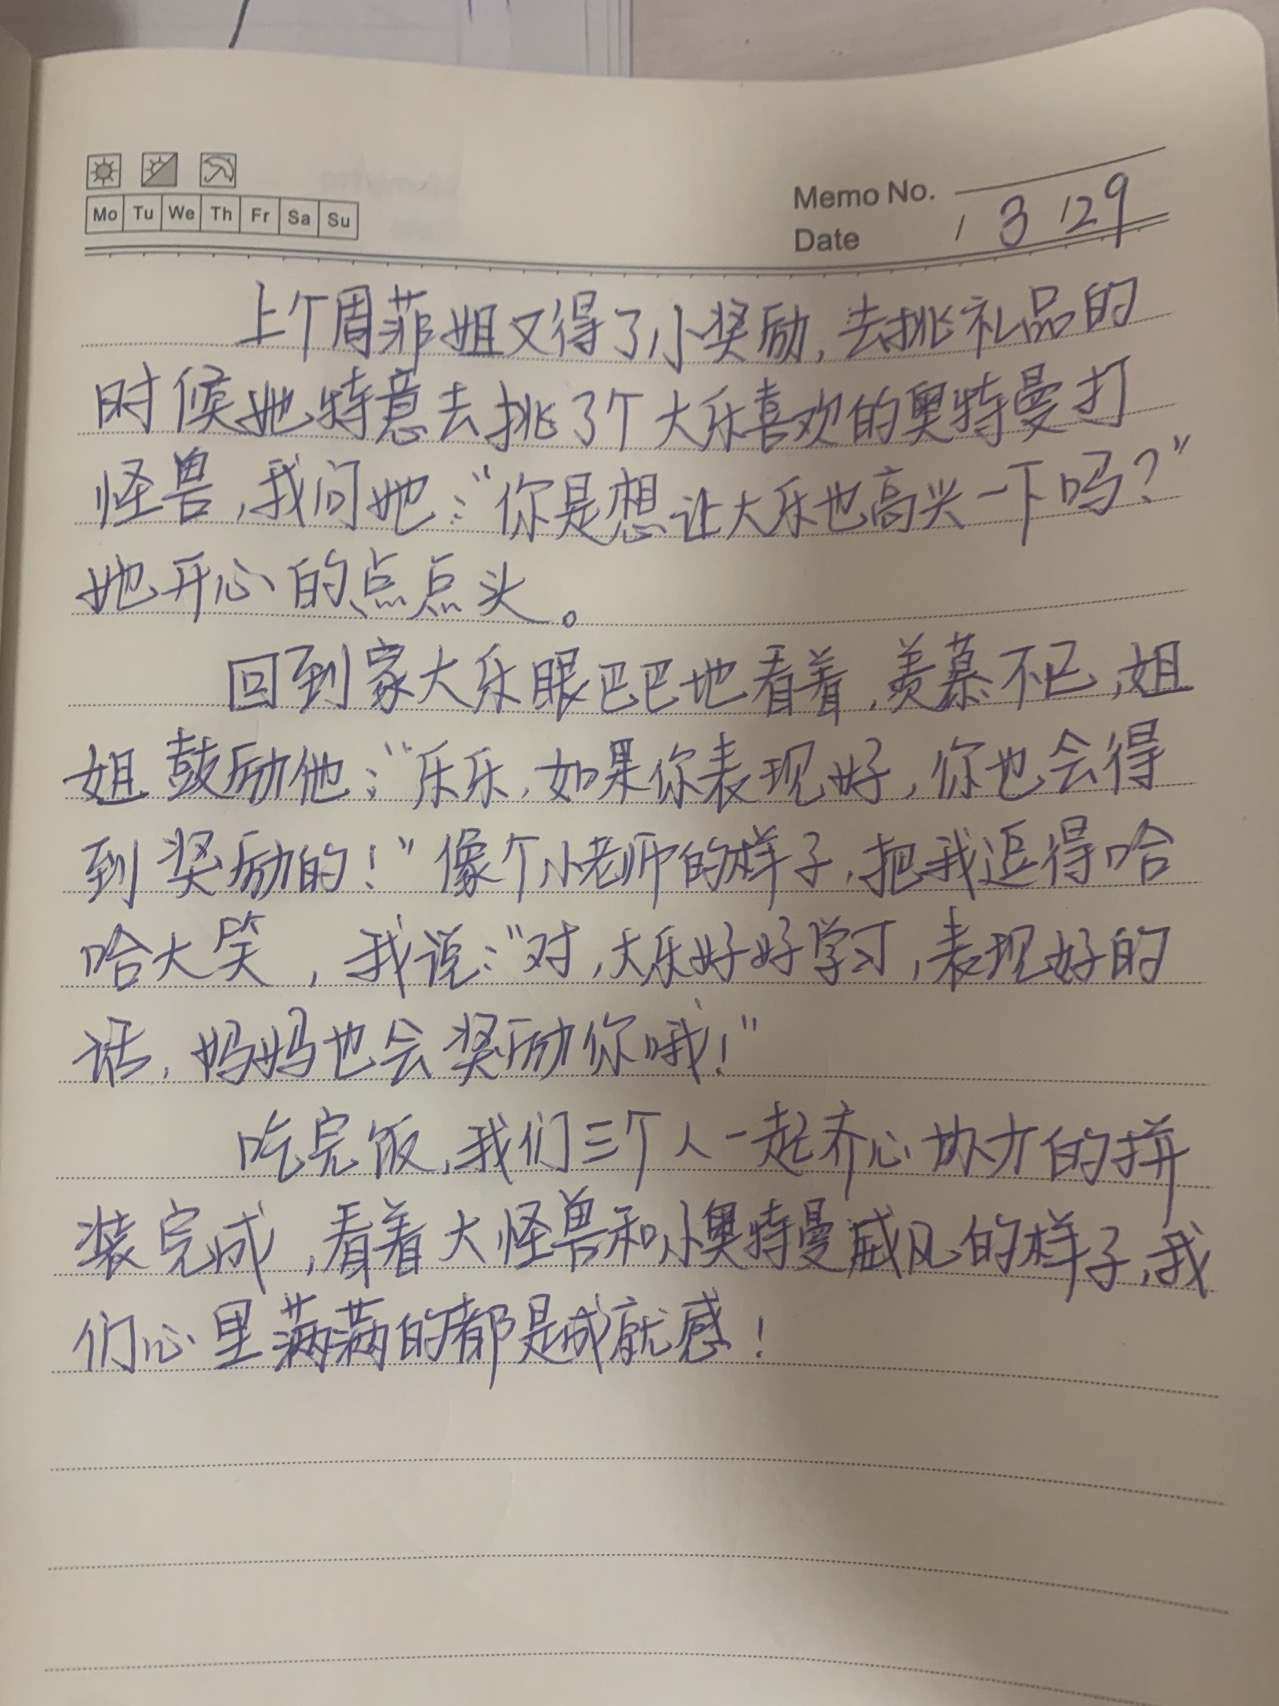 Mo Tu We Th Fr Sa Su
Memo No.
Date / 3 /29
上个周菲姐又得了小奖励，去挑礼品的
时候她特意去挑了个大乐喜欢的奥特曼打
怪兽，我问她：“你是想让大乐也高兴一下吗？”
她开心的点点头。
回到家大乐眼巴巴地看着，羡慕不已，姐
姐鼓励他：“乐乐，如果你表现好，你也会得
到奖励的！”像个小老师的样子，把我逗得哈
哈大笑，我说：“对，大乐好好学习，表现好的
话，妈妈也会奖励你哦！”
吃完饭，我们三个人一起齐心协力的拼
装完成，看着大怪兽和小奥特曼威风的样子，我
们心里满满的都是成就感！